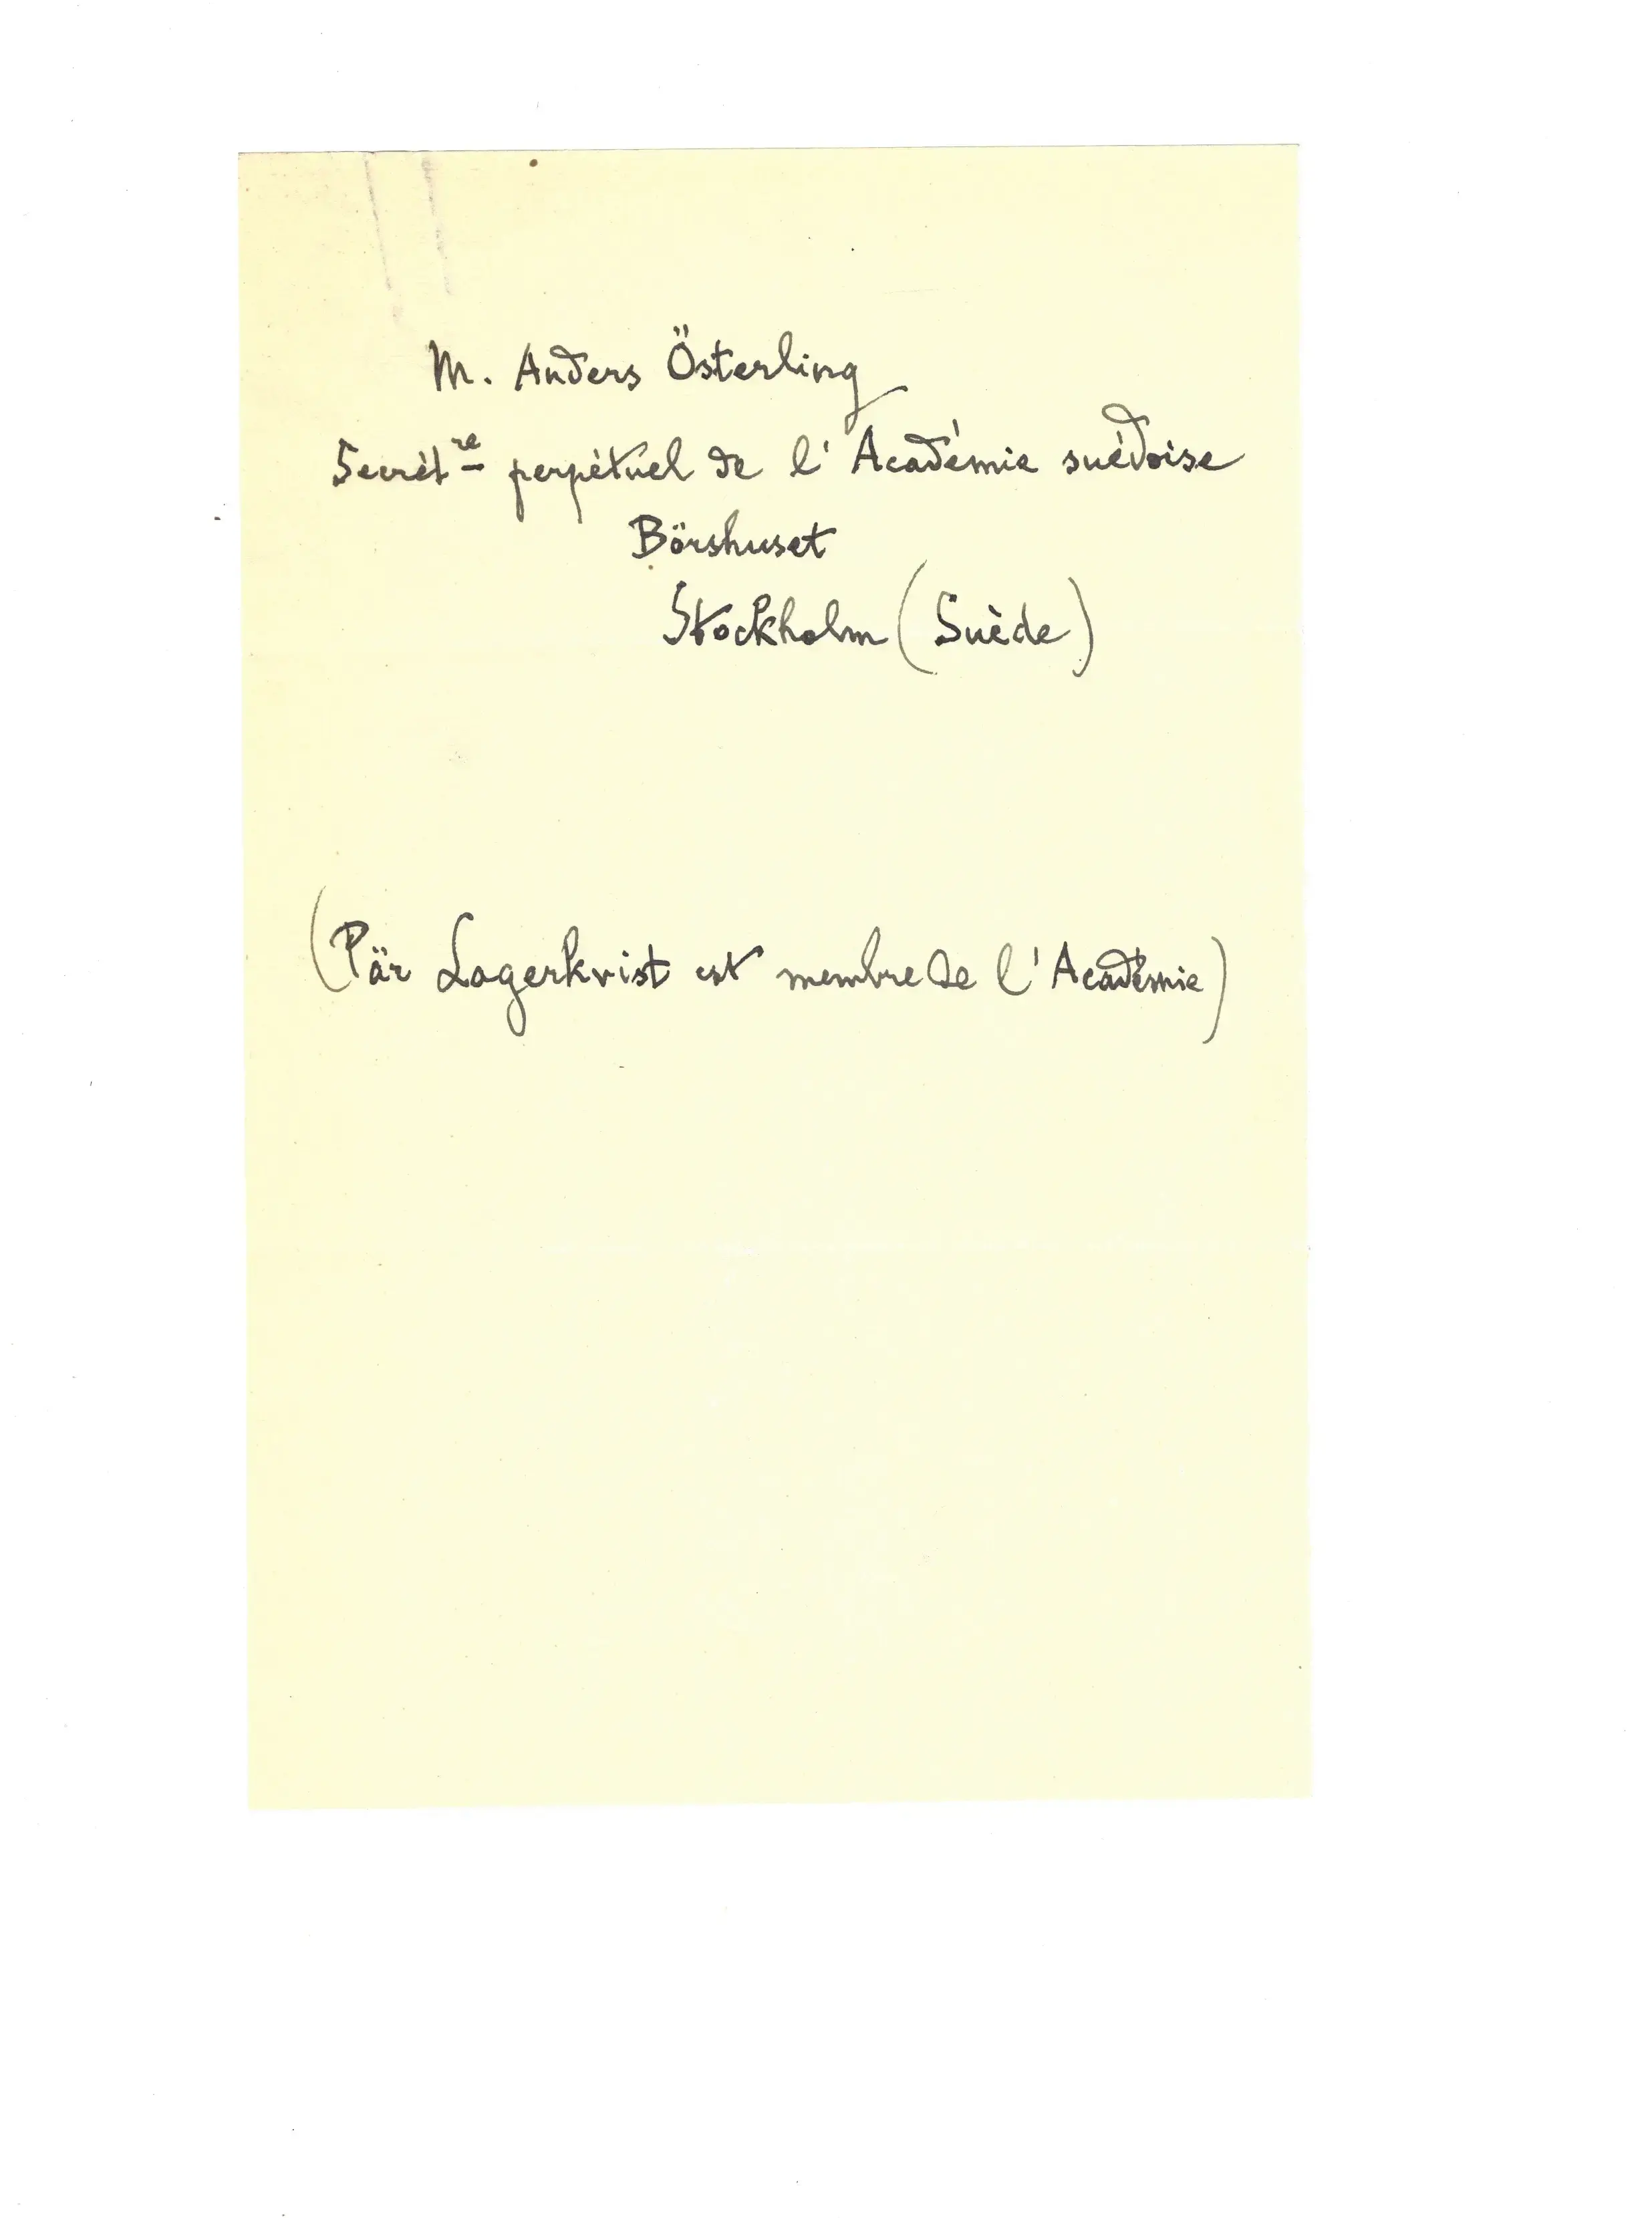 M. Anders Österling
Secrét<sup>re</sup> perpétuel de l'Académie suédoise
Börshuset
Stockholm (Suède)
(Pär Lagerkvist est membre de l'Académie)